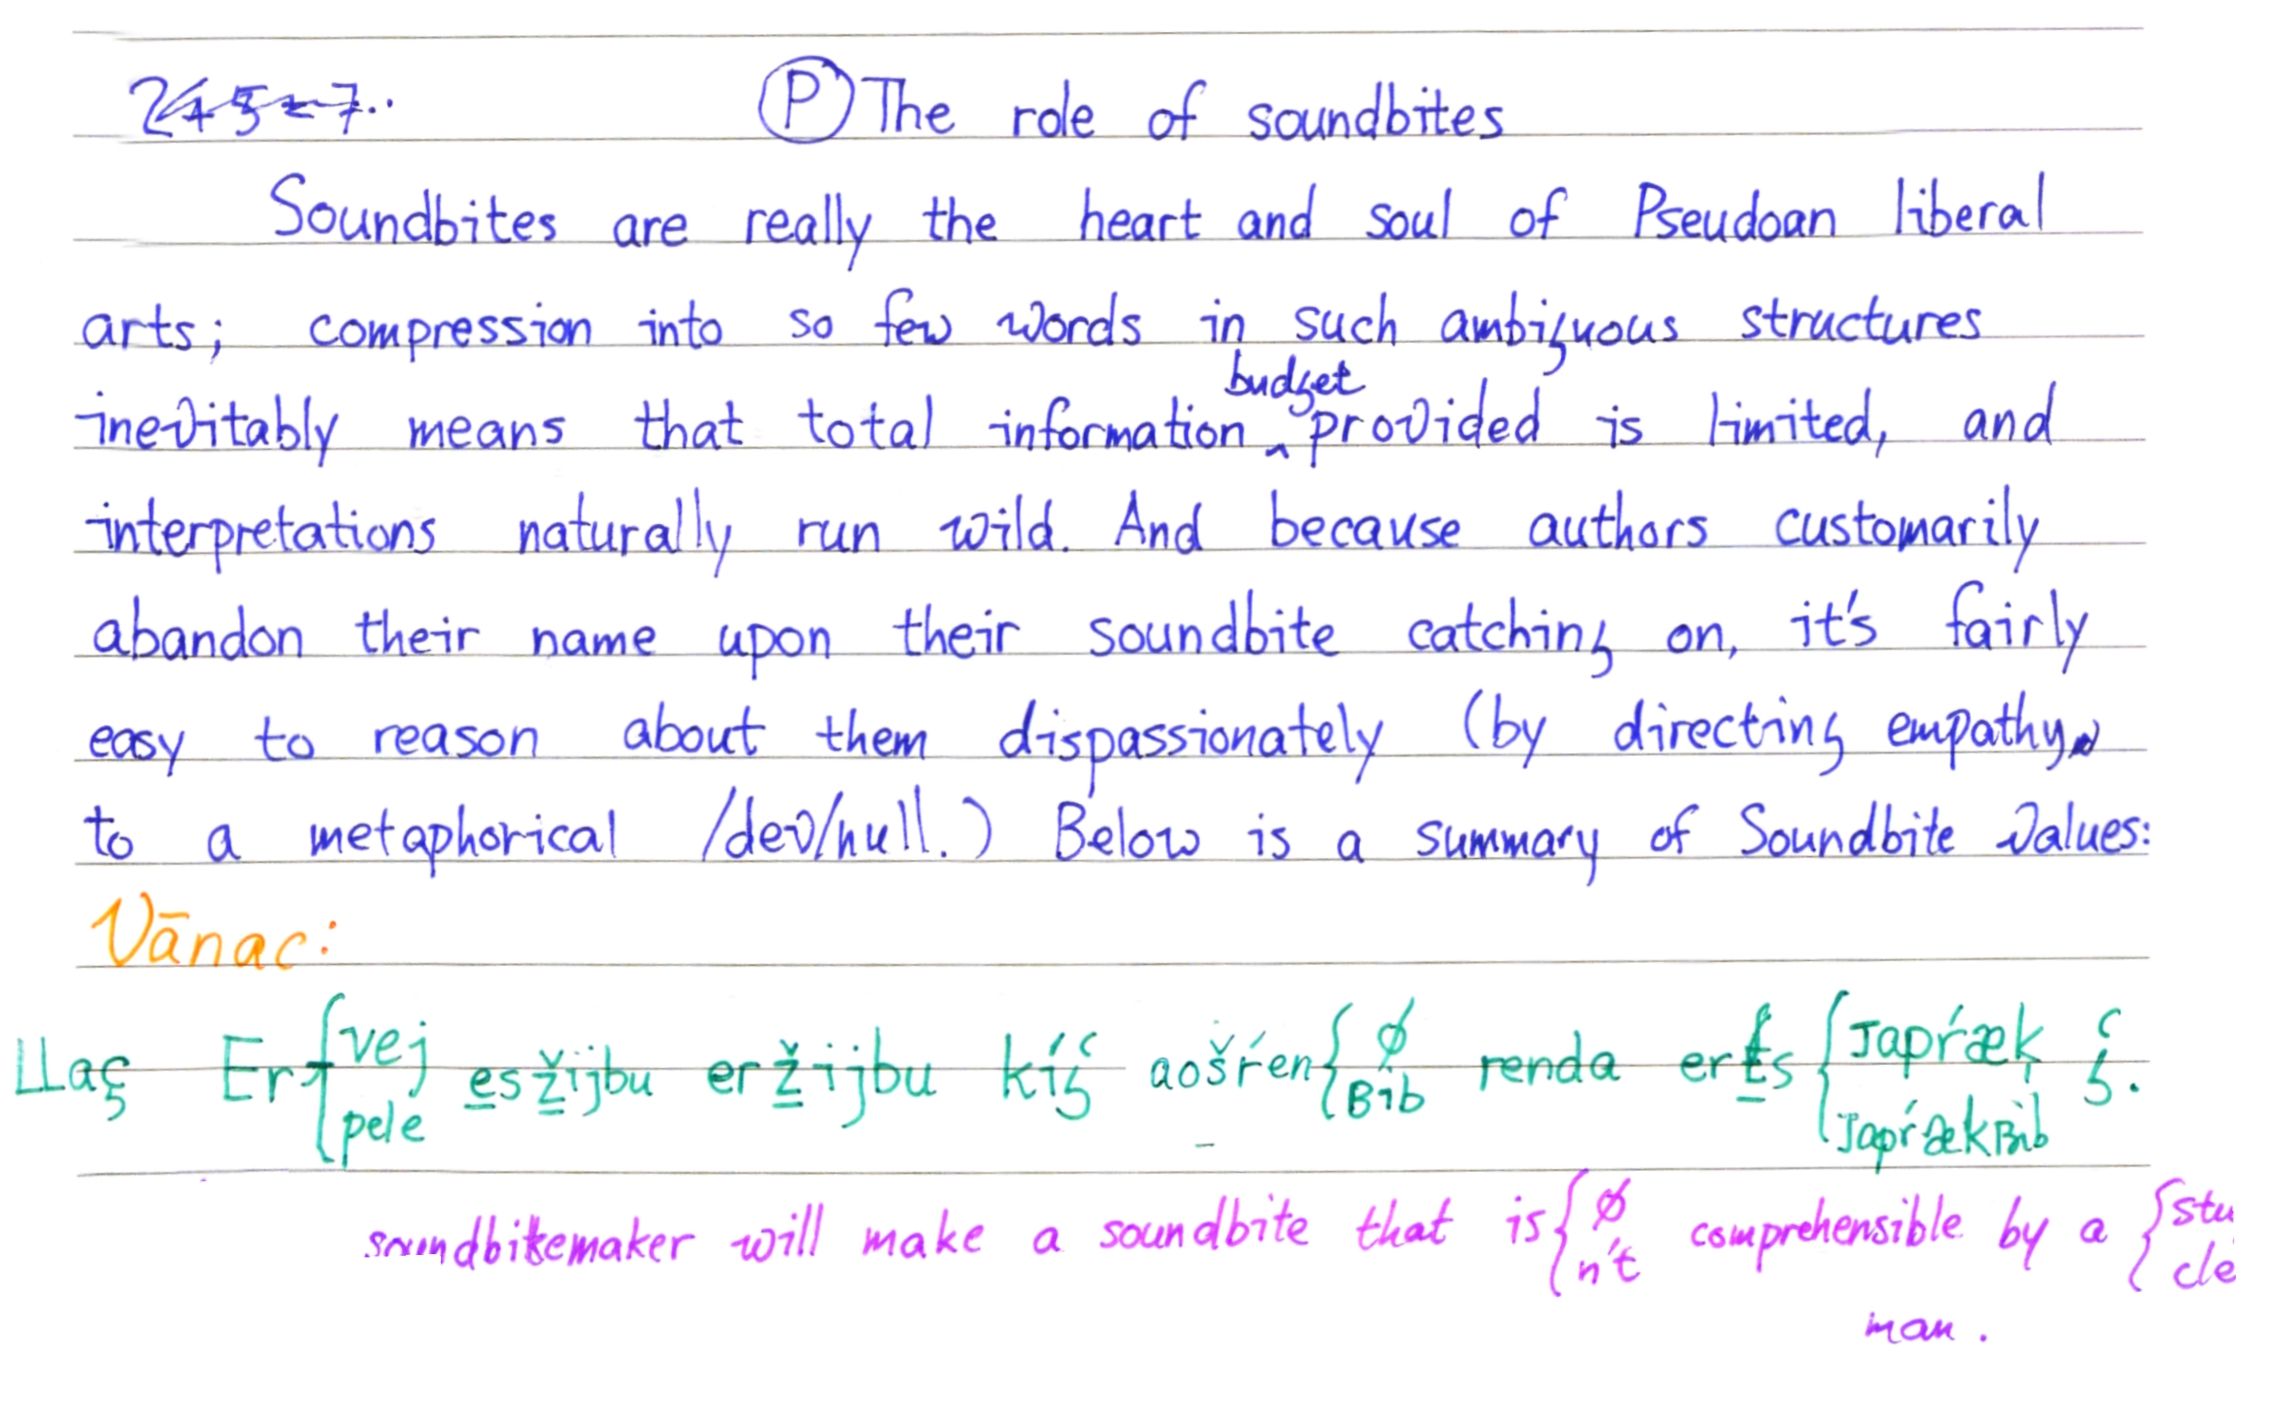 Ⓟ The role of soundbites
Soundbites are really the heart and soul of Pseudoan liberal
arts; compression into so few words in such ambiguous structures
budget
inevitably means that total information ‸ provided is limited, and
interpretations naturally run wild. And because authors customarily
abandon their name upon their soundbite catching on, it's fairly
easy to reason about them dispassionately (by directing empathy
to a metaphorical /dev/null.) Below is a summary of Soundbite Values:
Vānac:
Er { vej esžijbu eržijbu aošŕen { ø renda { Japŕæk
pele Bib JapŕækBib
soundbitemaker will make a soundbite that is { ø comprehensible by a { stu
n't cle
man.